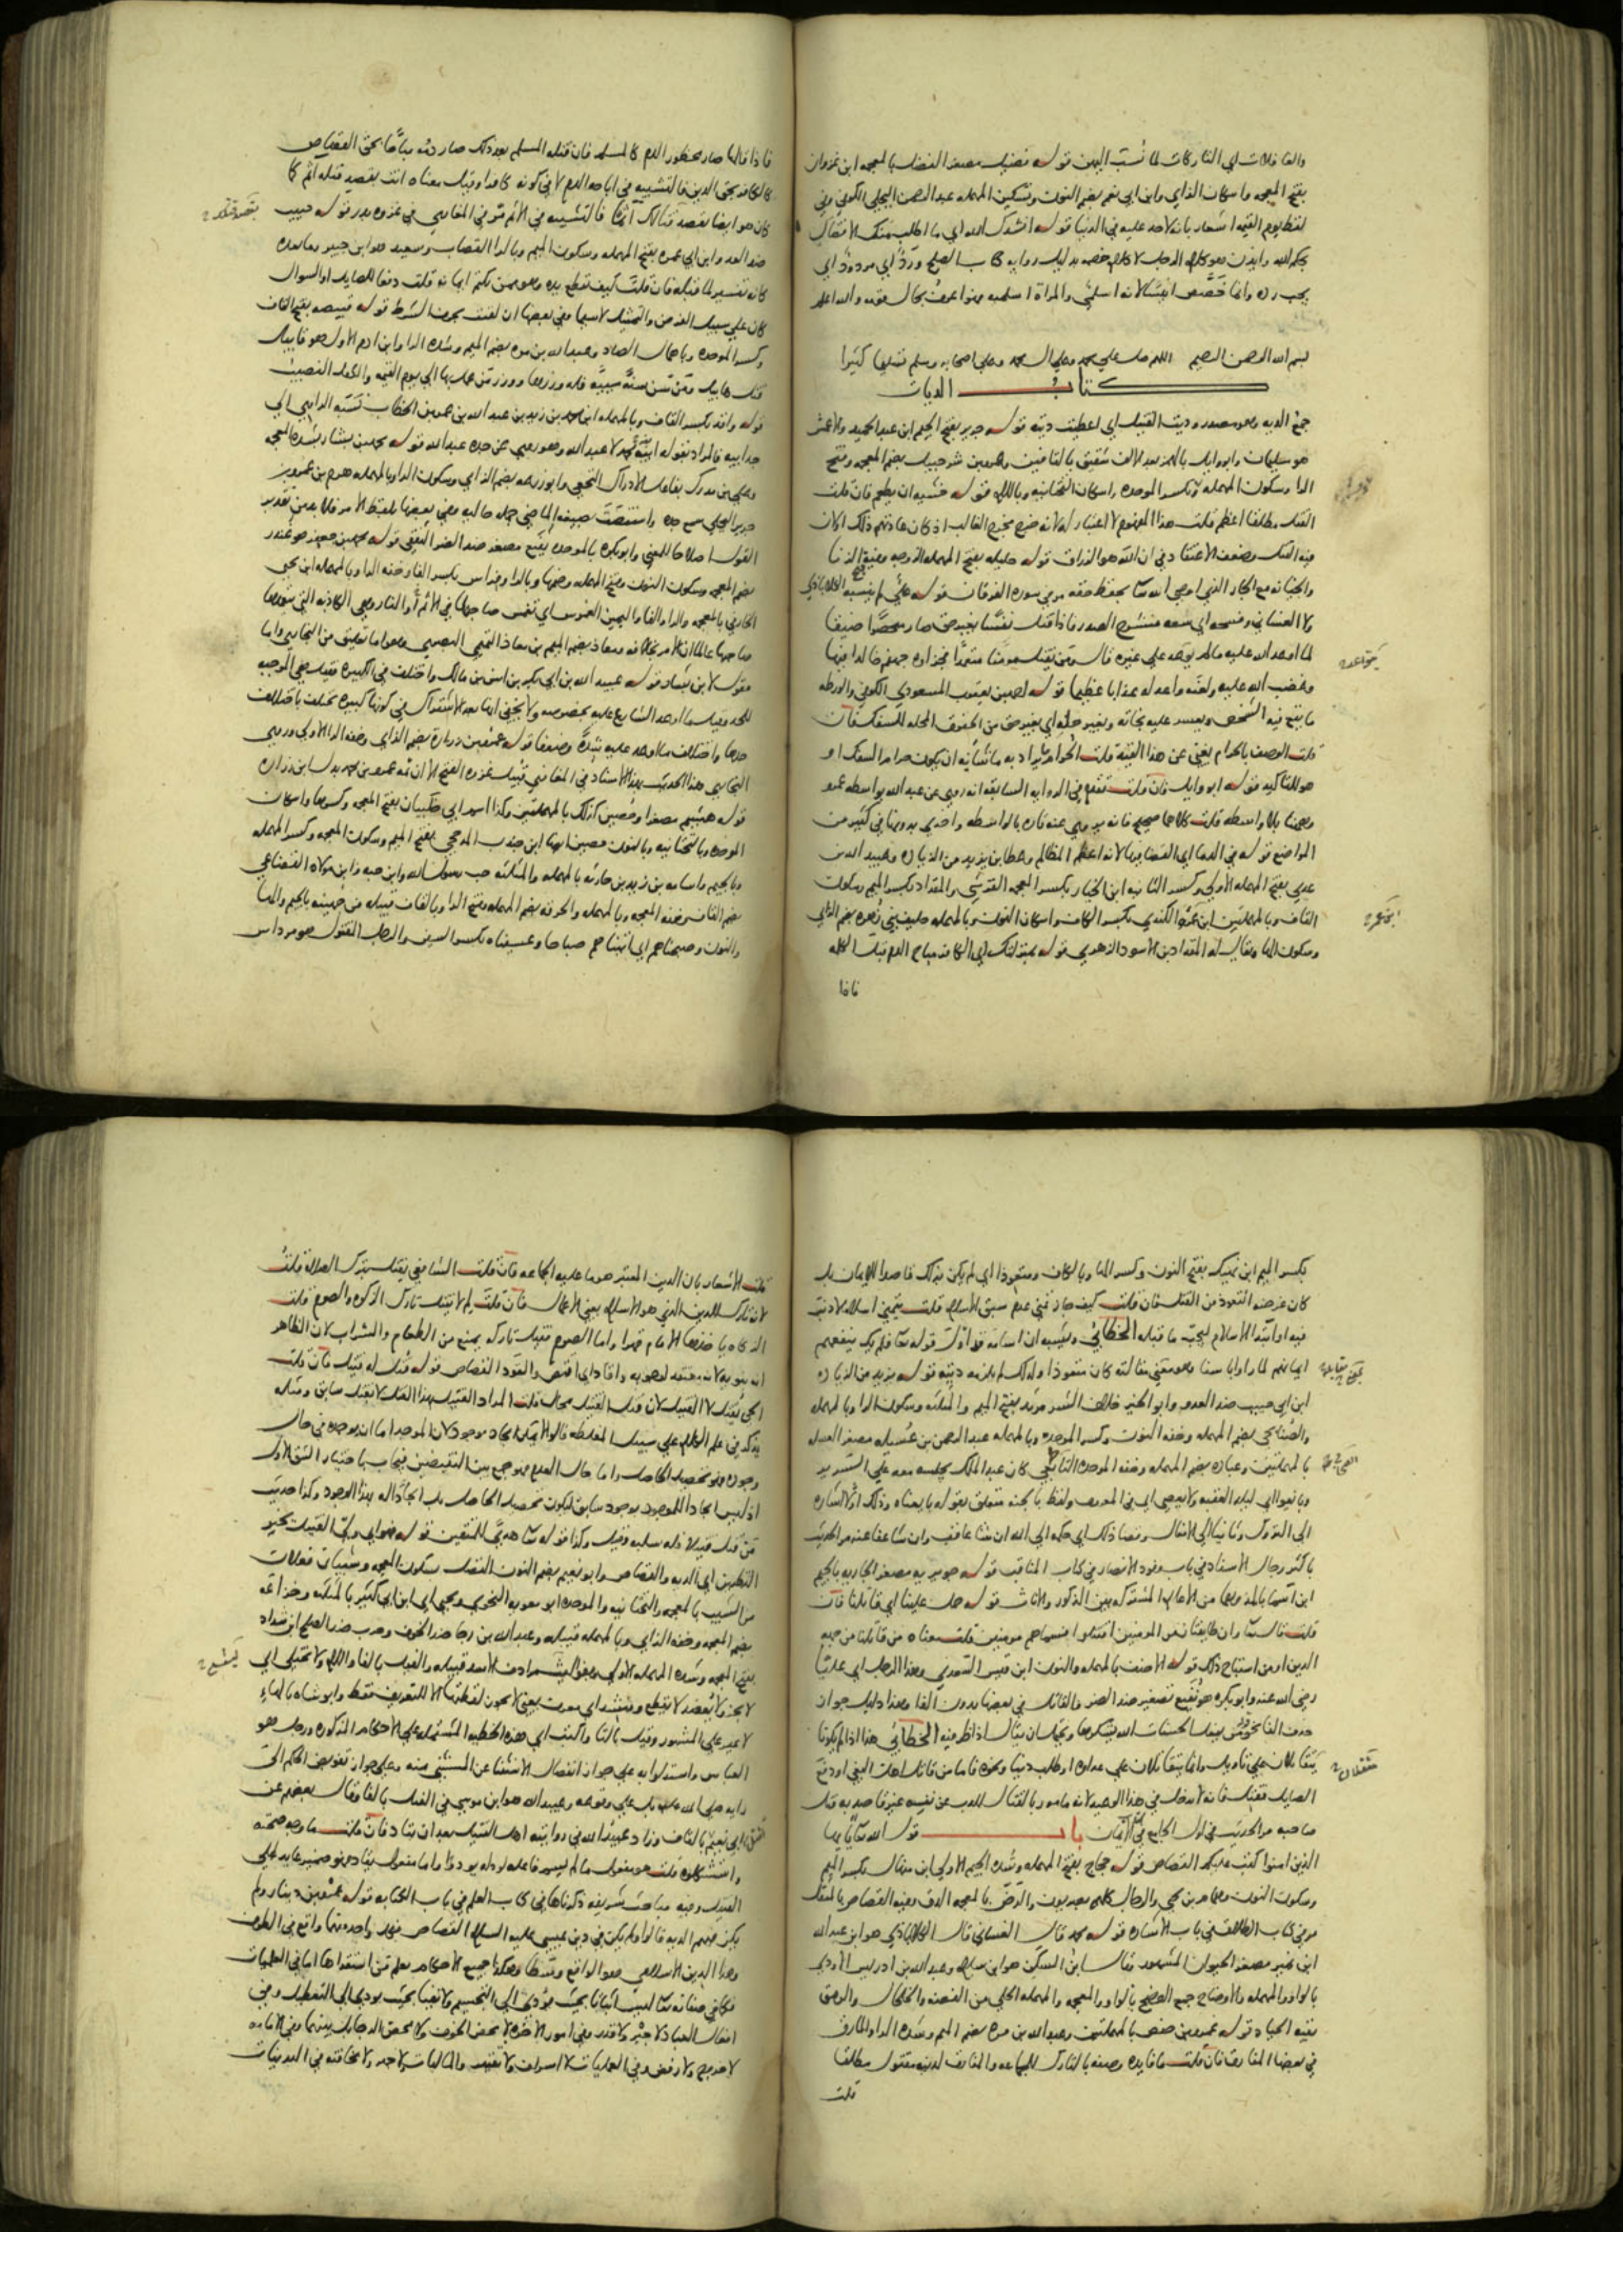 والغافلات اي التاركات لما نسب اليهن قوله فضيل مصغر الفضل بالمعجمه ابن غزوان
بفتح المعجمه واسكان الزاي وابن ابي نعم بضم النون وتسكين المهمله عبد الرحمن البجلي الكوفي وفي
لفظ يوم القيمه اشعار بانه لا حد عليه في الدنيا قوله انشدك الله اي ما اطلب منك الا قضاك
بحكم الله وايذن هو كلام الرجل لا كلام خصمه بدليل روايه كتاب الصلح ورد اي مردود اي
يجب رده وانما خصص انيسا لانه اسلمي والمراة اسلميه فهو اعرف بحال قومه والله اعلم
بسم الله الرحمن الرحيم اللهم صل علي محمد وعلي ال محمد وعلي اصحابه وسلم تسليما كثيرا
كتاب الديات
جمع الديه وهو مصدر وديت القتيل اي اعطيت ديته قوله جرير بفتح الجيم ابن عبد الحميد والاعمش
هو سليمان وابو وايل بالهمز بعد الالف شقيق بالقافين وعمرو بن شرحبيل بضم المعجمه وفتح
الرا وسكون المهمله وكسر الموحده واسكان التحتانيه وباللام قوله خشيه ان يطعم فان قلت
القتل مطلقا اعظم قلت هذا المفهوم لا اعتبار له لانه خرج مخرج الغالب اذ كان عادتهم ذلك او لان
فيه القتل وضعف الاعتقاد في ان الله هو الرزاق قوله حليله بفتح المهمله الزوجه وفيه الزنا
والخيانه مع الجار الذي اوصي الله تعالى بحفظ حقه مر في سوره الفرقان قوله علي لم ينسبه الكلاباذي
ولا الغساني وفسحه اي سعه منشرح الصدر فاذا قتل نفسا بغير حق صار منحصرا ضيقا
لما اوعد الله عليه ما لم يوعد علي غيره قال ومن يقتل مومنا متعمدا فجزاوه جهنم خالدا فيها
وغضب الله عليه ولعنه واعد له عذابا عظيما قوله احمد بن يعقوب المسعودي الكوفي والورطه
ما يقع فيه الشخص ويعسر عليه نجاته وبغير حله اي بغير حق من الحقوق المحله للسفك فان
قلت الوصف بالحرام يغني عن هذا القيد قلت الحرام يراد به ما شانه ان يكون حرام السفك او
هو للتاكيد قوله ابو وايل فان قلت تقدم في الروايه السابقه انه روي عن عبد الله بواسطه عمرو
وههنا بلا واسطه قلت كلاهما صحيح فانه يروي عنه تاره بالواسطه واخري بدونها في كثير من
المواضع قوله في الدما اي القضا بها لانه اعظم المظالم وعطا بن يزيد من الزياده وعبيد الله بن
عدي بفتح المهمله الاولي وكسر الثانيه ابن الخيار بكسر المعجمه القرشي والمقداد بكسر الميم وسكون
القاف وبالمهملتين ابن عمرو الكندي بكسر الكاف واسكان النون وبالمهمله حليف بني زهره بضم الزاي
وسكون الها ويقال له المقداد بن الاسود الزهري قوله بمنزلتك اي الكافر مباح الدم قبل الكلمه
فاذا
فاذا قالها صار محظور الدم كالمسلم فان قتله المسلم بعد ذلك صار دمه مباحا بحق القصاص
كالكافر بحق الدين فالتشبيه في اباحه الدم لا في كونه كافرا وقيل معناه انت بقصد قتله اثم كما
كان هو ايضا بقصد قتالك اثما فالتشبيه في الاثم مر في المغازي في غزوه بدر قوله حبيب
ضد العدو وابن ابي عمره بفتح المهمله وسكون الميم وبالرا القصاب وسعيد هو ابن جبير وما بعده
كانه تفسير لما قبله فان قلت كيف تقطع يده وهو ممن يكتم ايمانه قلت دفعا للصايل او السوال
كان علي سبيل الفرض والتمثيل لا سيما وفي بعضها ان لقيت بحرف الشرط قوله قبيصه بفتح القاف
وكسر الموحده وباهمال الصاد وعبد الله بن مره بضم الميم وشده الرا وابن ادم الاول هو قابيل
قتل هابيل ومن سن سنه سييه فله وزرها ووزر من عمل بها الي يوم القيمه والكفل النصيب
قوله واقد بكسر القاف وبالمهمله ابن محمد بن زيد بن عبد الله بن عمر بن الخطاب نسبه الراوي الي
جد ابيه فالمراد بقوله ابيه محمد لا عبد الله وهو روي عن جده عبد الله قوله محمد بن بشار بشده المعجمه
وعلي بن مدرك بفاعل الادراك النخعي وابو زرعه بضم الزاي وسكون الرا وبالمهمله هرم بن عمرو بن
جرير البجلي سمع جده واستنصت بصيغه الماضي جمله حاليه وفي بعضها بلفظ الامر فلا بد من تقدير
القول اصلاحا للمعني وابو بكره بالموحده نفيع مصغر ضد الضر الثقفي قوله محمد بن جعفر هو غندر
بضم المعجمه وسكون النون وفتح المهمله وضمها وبالرا وفراس بكسر الفا وخفه الرا وبالمهمله ابن يحيي
الخارفي بالمعجمه والرا والفا واليمين الغموس اي تغمس صاحبها في الاثم او النار وهي الكاذبه التي يتعمدها
صاحبها عالما ان الامر بخلافه ومعاذ بضم الميم بن معاذ التميمي البصري وهو اما تعليق من البخاري واما
مقول لابن بشار قوله عبيد الله بن ابي بكر بن انس بن مالك واختلف في الكبيره فقيل هي الموجبه
للحد وقيل ما اوعد الشارع عليه بخصوصه ولا يخفي انها بعد الاشتراك في كونها كبيره تختلف باختلاف
حدها واختلاف ما اوعد عليه شده وضعفا قوله عمرو بن زراره بضم الزاي وخفه الرا الاولي وروي
البخاري هذا الحديث بهذا الاسناد في المغازي قبيل غزوه الفتح الا ان ثمه عمرو بن محمد بدل ابن زراره
قوله هشيم مصغرا وحصين كذلك بالمهملتين وكذا اسم ابي ظبيان بفتح المعجمه وكسرها واسكان
الموحده وبالتحتانيه وبالنون حصين ايضا ابن جندب المذحجي بفتح الميم وسكون المعجمه وكسر المهمله
وبالجيم واسامه بن زيد بن حارثه بالمهمله والمثلثه حب رسول الله وابن حبه وابن مولاه القضاعي
بضم القاف وخفه المعجمه وبالمهمله والحرقه بضم المهمله وفتح الرا وبالقاف قبيله من جهينه بالجيم والها
والنون وصبحناهم اي اتيناهم صباحا وغشيناه بكسر الشين والرجل المقتول هو مرداس
بكسر الميم ابن نهيك بفتح النون وكسر الها وبالكاف ومتعوذا اي لم يكن بذلك قاصدا للايمان بل
كان غرضه التعوذ من القتل فان قلت كيف جاز تمني عدم سبق الاسلام قلت يتمني اسلاما لا ذنب
فيه او ابتدا الاسلام ليجب ما قبله الخطابي ويشبه ان اسامه قد اول قوله تعالى فلم يك ينفعهم
ايمانهم لما راوا باسنا وهو معني مقالته كان متعوذا ولذلك لم يلزمه ديته قوله يزيد من الزياده
ابن ابي حبيب ضد العدو وابو الخير خلاف الشر مرثد بفتح الميم والمثلثه وسكون الرا وبالمهمله
والصنابحي بضم المهمله وخفه النون وكسر الموحده وبالمهمله عبد الرحمن بن عسيله مصغر العسله
بالمهملتين وعباده بضم المهمله وخفه الموحده كان عبد الملك يجلسه معه علي السرير
وبايعوا اي ليله العقبه ولا نعصي اي في المعروف ولفظ بالجنه متعلق بقوله بايعناه وذلك اشاره
الي التروك وثانيا الي الافعال وقضا ذلك اي حكمه الي الله ان شا عاقب وان شا عفا عنه مر الحديث
باكثر رجال الاسناد في باب وفود الانصار في كتاب المناقب قوله جويريه مصغر الجاريه بالجيم
ابن اسما بالمد وهما من الاعلام المشتركه بين الذكور والاناث قوله حمل علينا اي قاتلنا فان
قلت قال تعالى وان طايفتان من المومنين اقتتلوا فسماهم مومنين قلت معناه من قاتلنا من جهه
الدين او من استباح ذلك قوله الاحنف بالمهمله والنون ابن قيس السعدي وهذا الرجل اي عليا
رضي الله عنه وابو بكره هو نفيع تصغير ضد الضر فالقاتل في بعضها بدون الفا وهذا دليل جواز
حذف الفا نحو من يفعل الحسنات الله يشكرها ويحتمل ان يقال اذا ظرفيه الخطابي هذا اذا لم يكونا
يتقاتلان علي تاويل وانما يتقاتلان علي عداوه او طلب دنيا ونحوه فاما من قاتل اهل البغي او دفع
الصايل فقتل فانه لا يدخل في هذا الوعيد لانه مامور بالقتال للذب عن نفسه غير قاصد به قتل
صاحبه مر الحديث في اول الجامع في الايمان باب قول الله تعالى يا ايها
الذين امنوا كتب عليكم القصاص قوله حجاج بفتح المهمله وشده الجيم الاولي ابن منهال بكسر الميم
وسكون النون وهمام بن يحيي والرجال كلهم بصريون والرض بالمعجمه الدق وفيه القصاص بالمثقل
مر في كتاب الطلاق في باب الاشاره قوله محمد قال الغساني قال الكلاباذي هو ابن عبد الله
ابن نمير مصغر الحيوان المشهور وقال ابن السكن هو ابن سلام وعبد الله بن ادريس الاودي
بالواو والمهمله والاوضاح جمع الوضح بالواو والمعجمه والمهمله الحلي من الفضه والخلخال والرمق
بقيه الحياه قوله عمر بن حفص بالمهملتين وعبد الله بن مره بضم الميم وشده الرا والمارق
في بعضها المفارق فان قلت ما فايده وصفه بالتارك للجماعه والمفارق لدينه مقتول مطلقا
قلت
قلت الاشعار بان الدين المعتبر هو ما عليه الجماعه فان قلت الشافعي يقتل بترك الصلاة قلت
لانه تارك للدين الذي هو الاسلام يعني الاعمال فان قلت لم لا يقتل تارك الزكوه والصوم قلت
الزكاه ياخذها الامام قهرا واما الصوم فقيل تاركه يمنع من الطعام والشراب لان الظاهر
انه ينويه لانه معتقد لوجوبه واقاد اي اقتص والقود القصاص قوله قتل له قتيل فان قلت
الحي يقتل لا القتيل لان قتل القتيل محال قلت المراد القتيل بهذا القتل لا بقتل سابق ومثله
يذكر في علم الكلام علي سبيل المغلطه قالوا لا يمكن ايجاد موجود لان الموجد اما ان يوجده في حال
وجوده فهو تحصيل الحاصل واما حال العدم فهو جمع بين النقيضين فيجاب باختيار الشق الاول
اذ ليس ايجادا للموجود بوجود سابق ليكون تحصيل الحاصل بل ايجادا له بهذا الوجود وكذا حديث
من قتل قتيلا فله سلبه وكذا قوله تعالى هدي للمتقين قوله فهو اي ولي القتيل بخير
النظرين اي الديه والقصاص وابو نعيم بضم النون الفضل بسكون المعجمه وشيبان فعلان
من الشيب بالمعجمه والتحتانيه والموحده ابو معويه النحوي ويحيي اي ابن ابي كثير بالمثلثه وخزاعه
بضم المعجمه وخفه الزاي وبالمهمله قبيله وعبد الله بن رجا ضد الخوف وحرب ضد الصلح ابن شداد
بفتح المعجمه وشده المهمله الاولي قبيله والفيل بالفا واللام ولا يختلي اي
لا يجز ولا يعضد لا يقطع ومنشد اي معرف يعني لا يجوز لقطتها الا للتعريف فقط وابو شاه بالهاء
لا غير علي المشهور وقيل بالتا واكتب اي هذه الخطبه المشتمله علي الاحكام المذكوره ورجل هو
العباس واستدلوا به علي جواز انفصال الاستثنا عن المستثني منه وعلي جواز تفويض الحكم الي
رايه صلى الله عليه وعبيد الله هو ابن موسي في الفيل بالفا وقال بعضهم عن
ابي نعيم بالقاف وزاد عبيد الله في روايته اهل القتيل بعد ان يقاد فان قلت ما وجه صحته
واستشكلوه قلت هو مفعول ما لم يسم فاعله لودي واما مفعول يقاد فهو ضمير عايد الي
القتيل وفيه مباحث شريفه ذكرناها في كتاب العلم في باب الكتابه قوله عمرو بن دينار ولم
يكن فيهم الديه قالوا ولم يكن في دين عيسي عليه السلام القصاص فكل واحد منهما واقع في الطرف
وهذا الدين الاسلامي هو الواقع وسطا وهكذا جميع الاحكام يعلم من استقراها اما في العلميات
فكما في صفاته تعالى ليس اثباتا بحيث يؤدي الي التجسيم ولا نفيا بحيث يودي الي التعطيل وفي
افعال العباد لا جبر ولا قدر وفي امور الاخره لا محض الخوف ولا محض الرجا بل بينهما وفي الامامه
لا خروج ولا رفض وفي العمليات لا اسراف ولا تقتير والماليات ولا جهر ولا مخافته في البدنيات